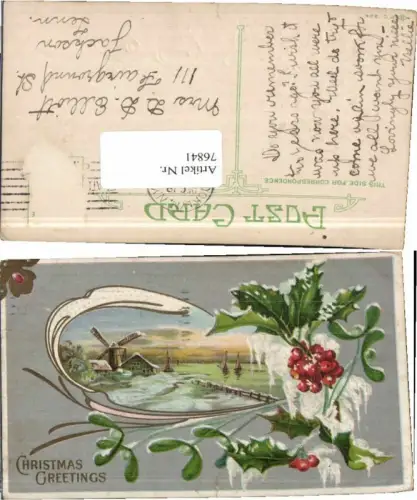 Mrs. D. D. Elliott
111 Fairground St.
Jackson
Tenn.
Artikel Nr.
76841
Do you remember
years ago I wish it
was now you all were
up here
come again soon for
we all want you
Lovingly your niece
THIS SIDE FOR CORRESPONDENCE
POST CARD
CHRISTMAS
GREETINGS